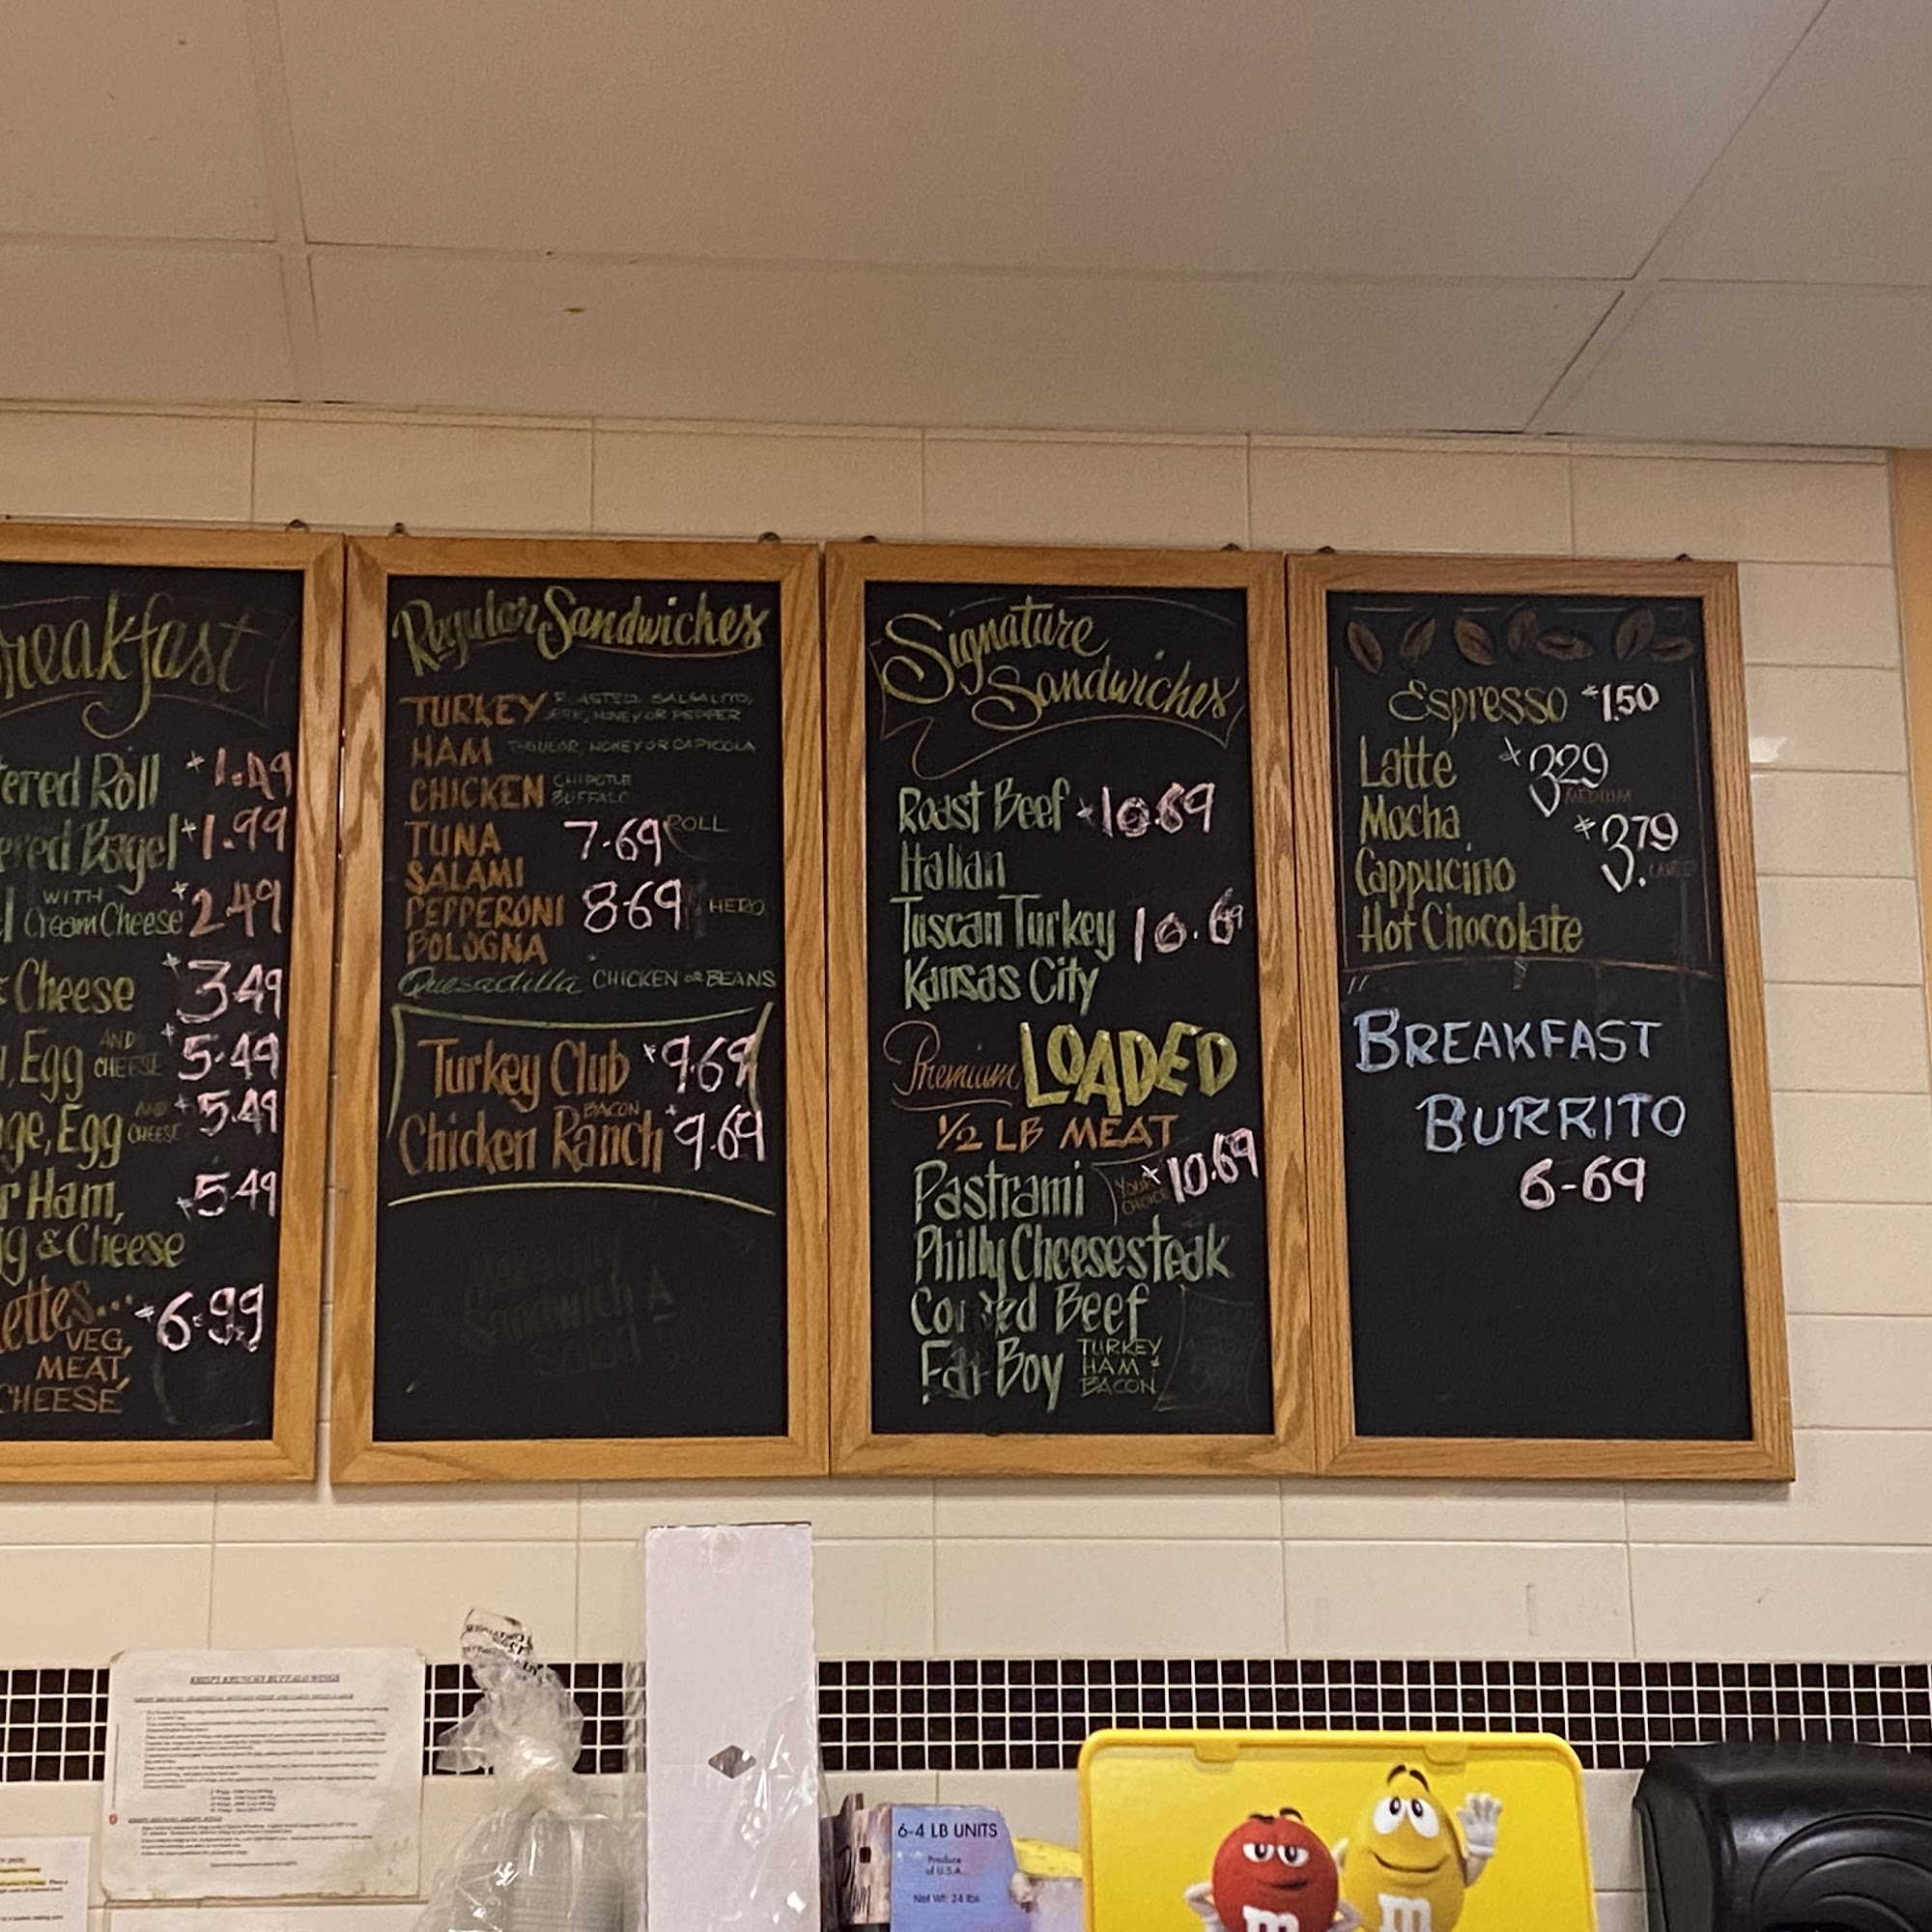 reakfast
tered Roll $1.49
ered Bagel $1.99
WITH
Cream Cheese $2.49
& Cheese $3.49
, Egg AND CHEESE $5.49
ge, Egg AND CHEESE $5.49
r Ham, $5.49
g & Cheese
ettes... $6.99
VEG,
MEAT,
CHEESE
Regular Sandwiches
TURKEY ROASTED, SALSALITO,
JERK, HONEY OR PEPPER
HAM REGULAR, HONEY OR CAPICOLA
CHICKEN CHIPOTLE
BUFFALO
TUNA 7.69 ROLL
SALAMI
PEPPERONI 8.69 HERO
BOLOGNA
Quesadilla CHICKEN OR BEANS
Turkey Club $9.69
BACON
Chicken Ranch $9.69
Signature
Sandwiches
Roast Beef $10.69
Italian
Tuscan Turkey 10.69
Kansas City
Premium LOADED
1/2 LB MEAT
Pastrami YOUR CHOICE $10.69
Philly Cheesesteak
Corned Beef
Fat Boy TURKEY
HAM &
BACON
Espresso $1.50
Latte $3.29
MEDIUM
Mocha $3.79
Cappucino LARGE
Hot Chocolate
BREAKFAST
BURRITO
6-69
KRISPY KRUNCHY BUFFALO WINGS
6-4 LB UNITS
Produce
of U.S.A.
Net Wt. 24 lbs.
m
m